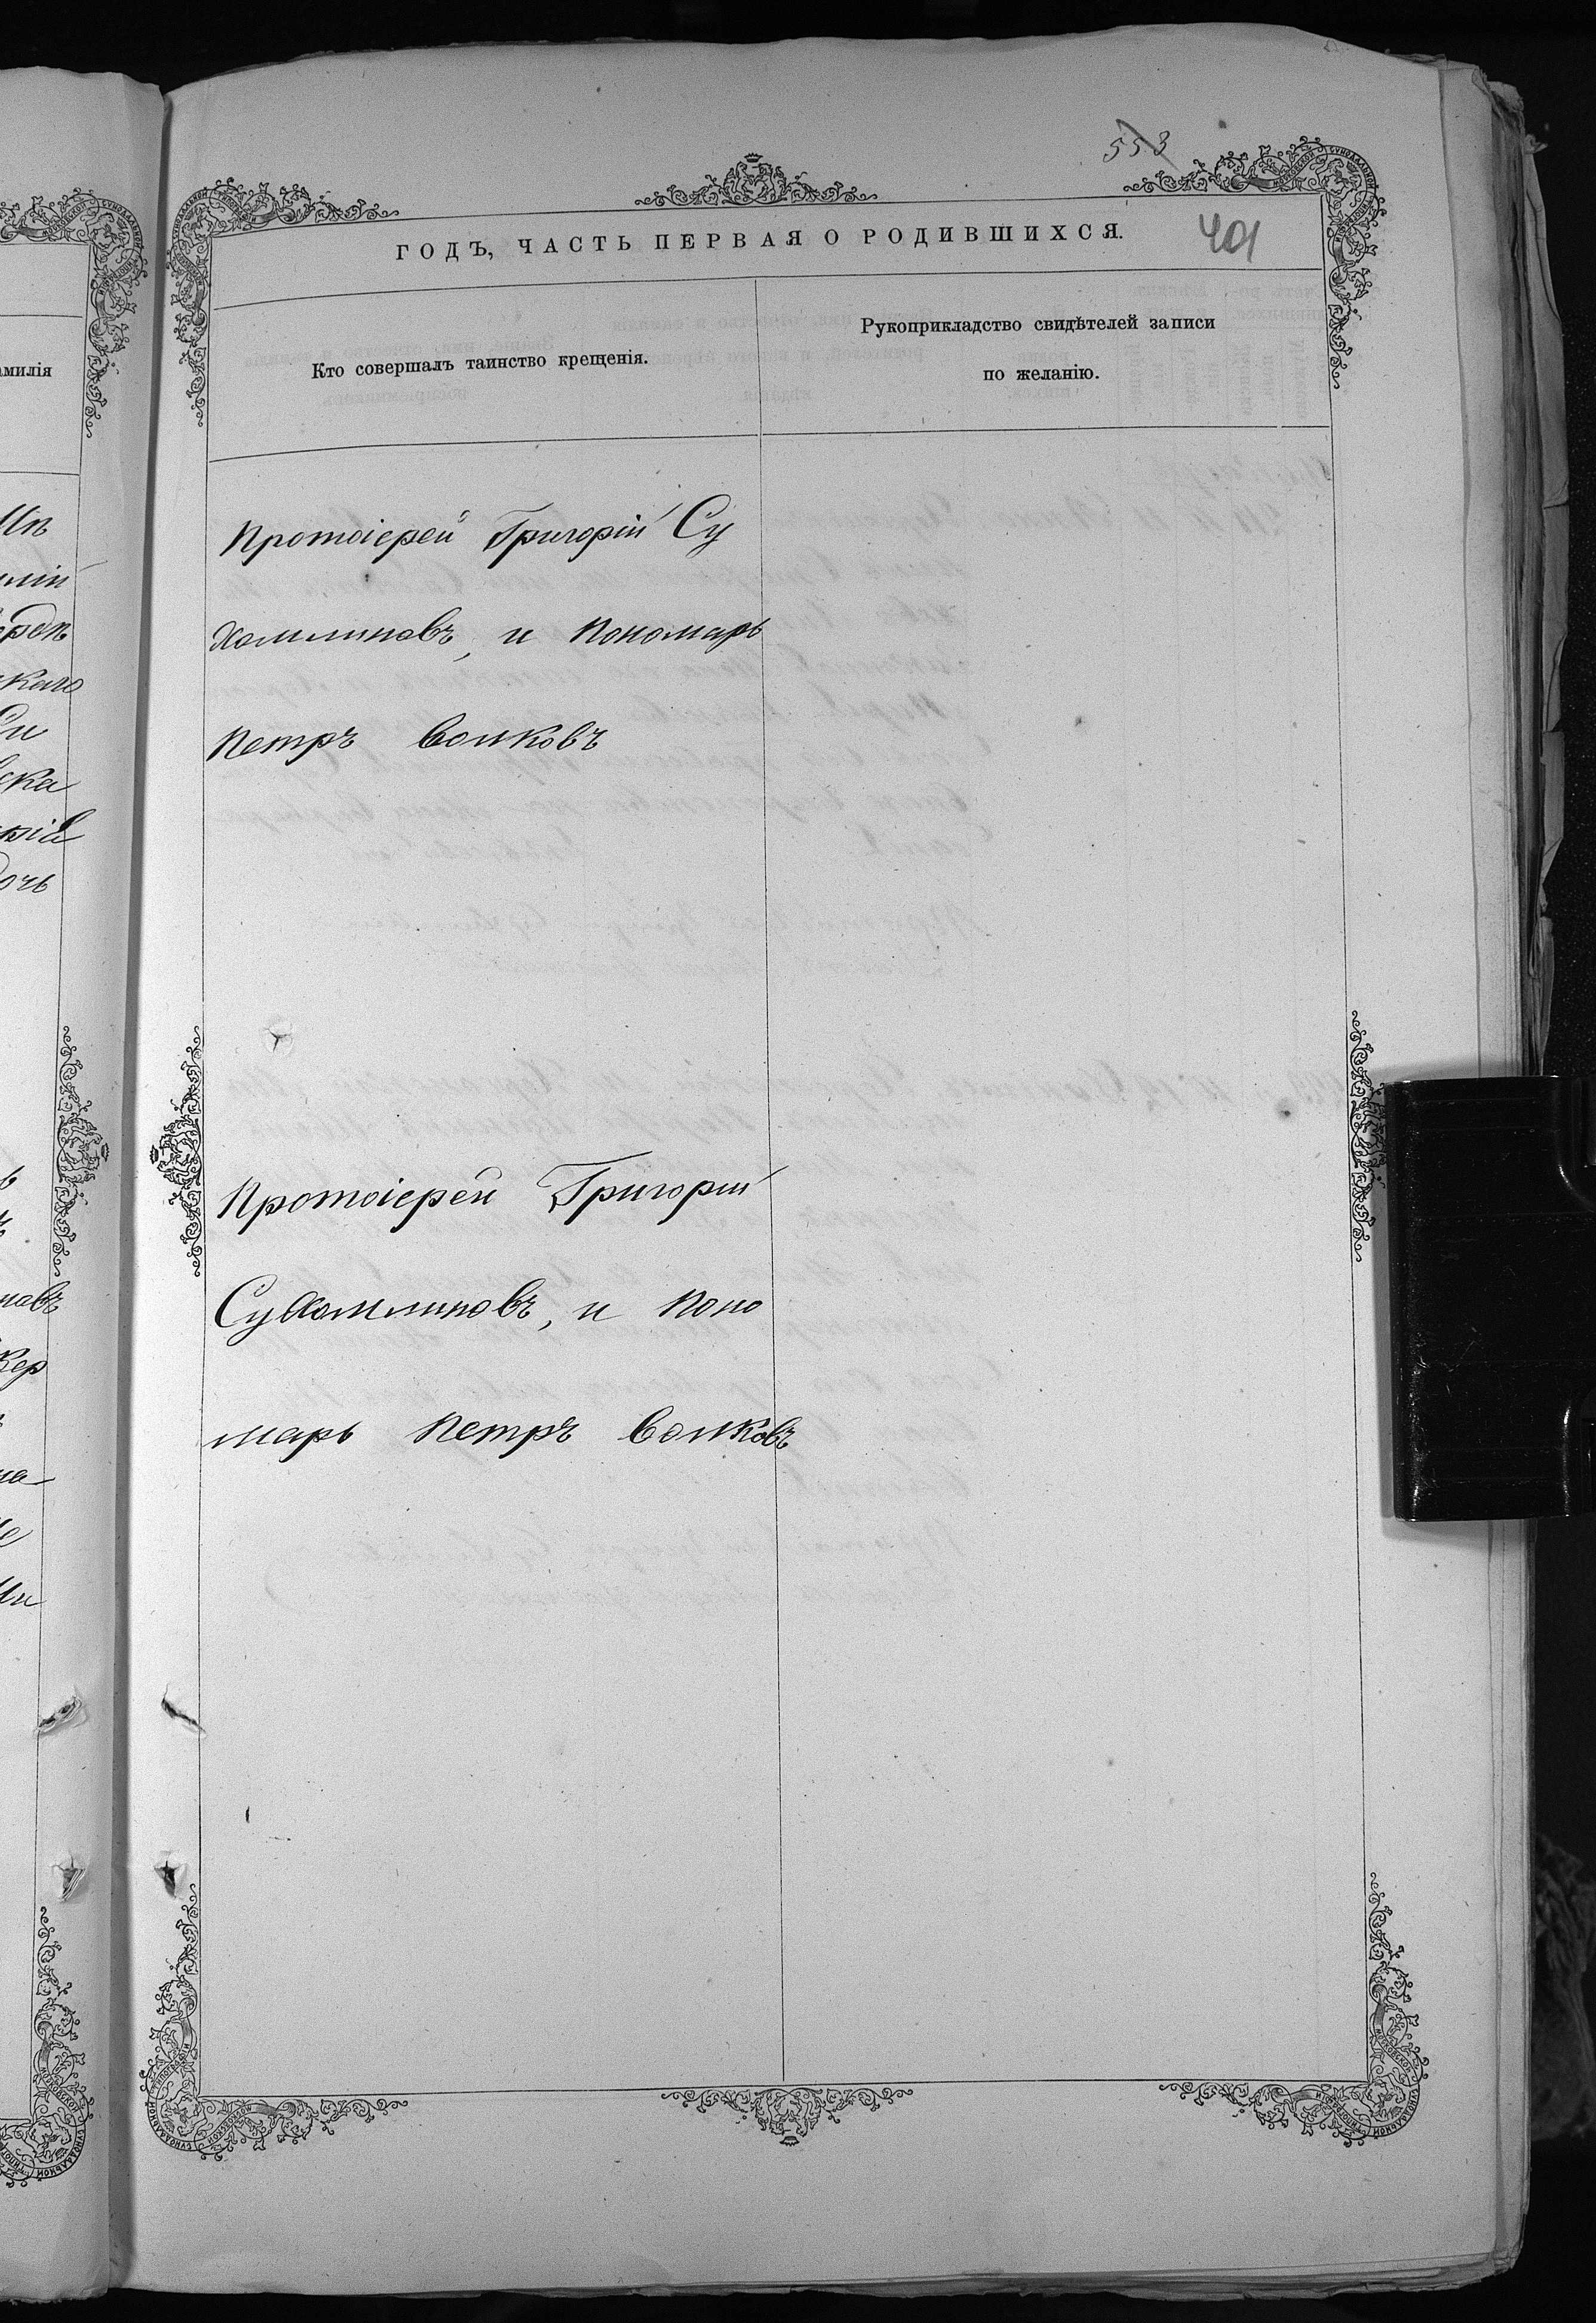 553
401
ГОДЪ, ЧАСТЬ ПЕРВАЯ О РОДИВШИХСЯ.
Кто совершалъ таинство крещенія.
Рукоприкладство свидѣтелей записи
по желанію.
Протоіерей Григорій Су
хомлиновъ, и Пономарь
Петръ Волковъ
Протоіерей Григорій
Сухомлиновъ, и Поно
марь Петръ Волковъ
амилія